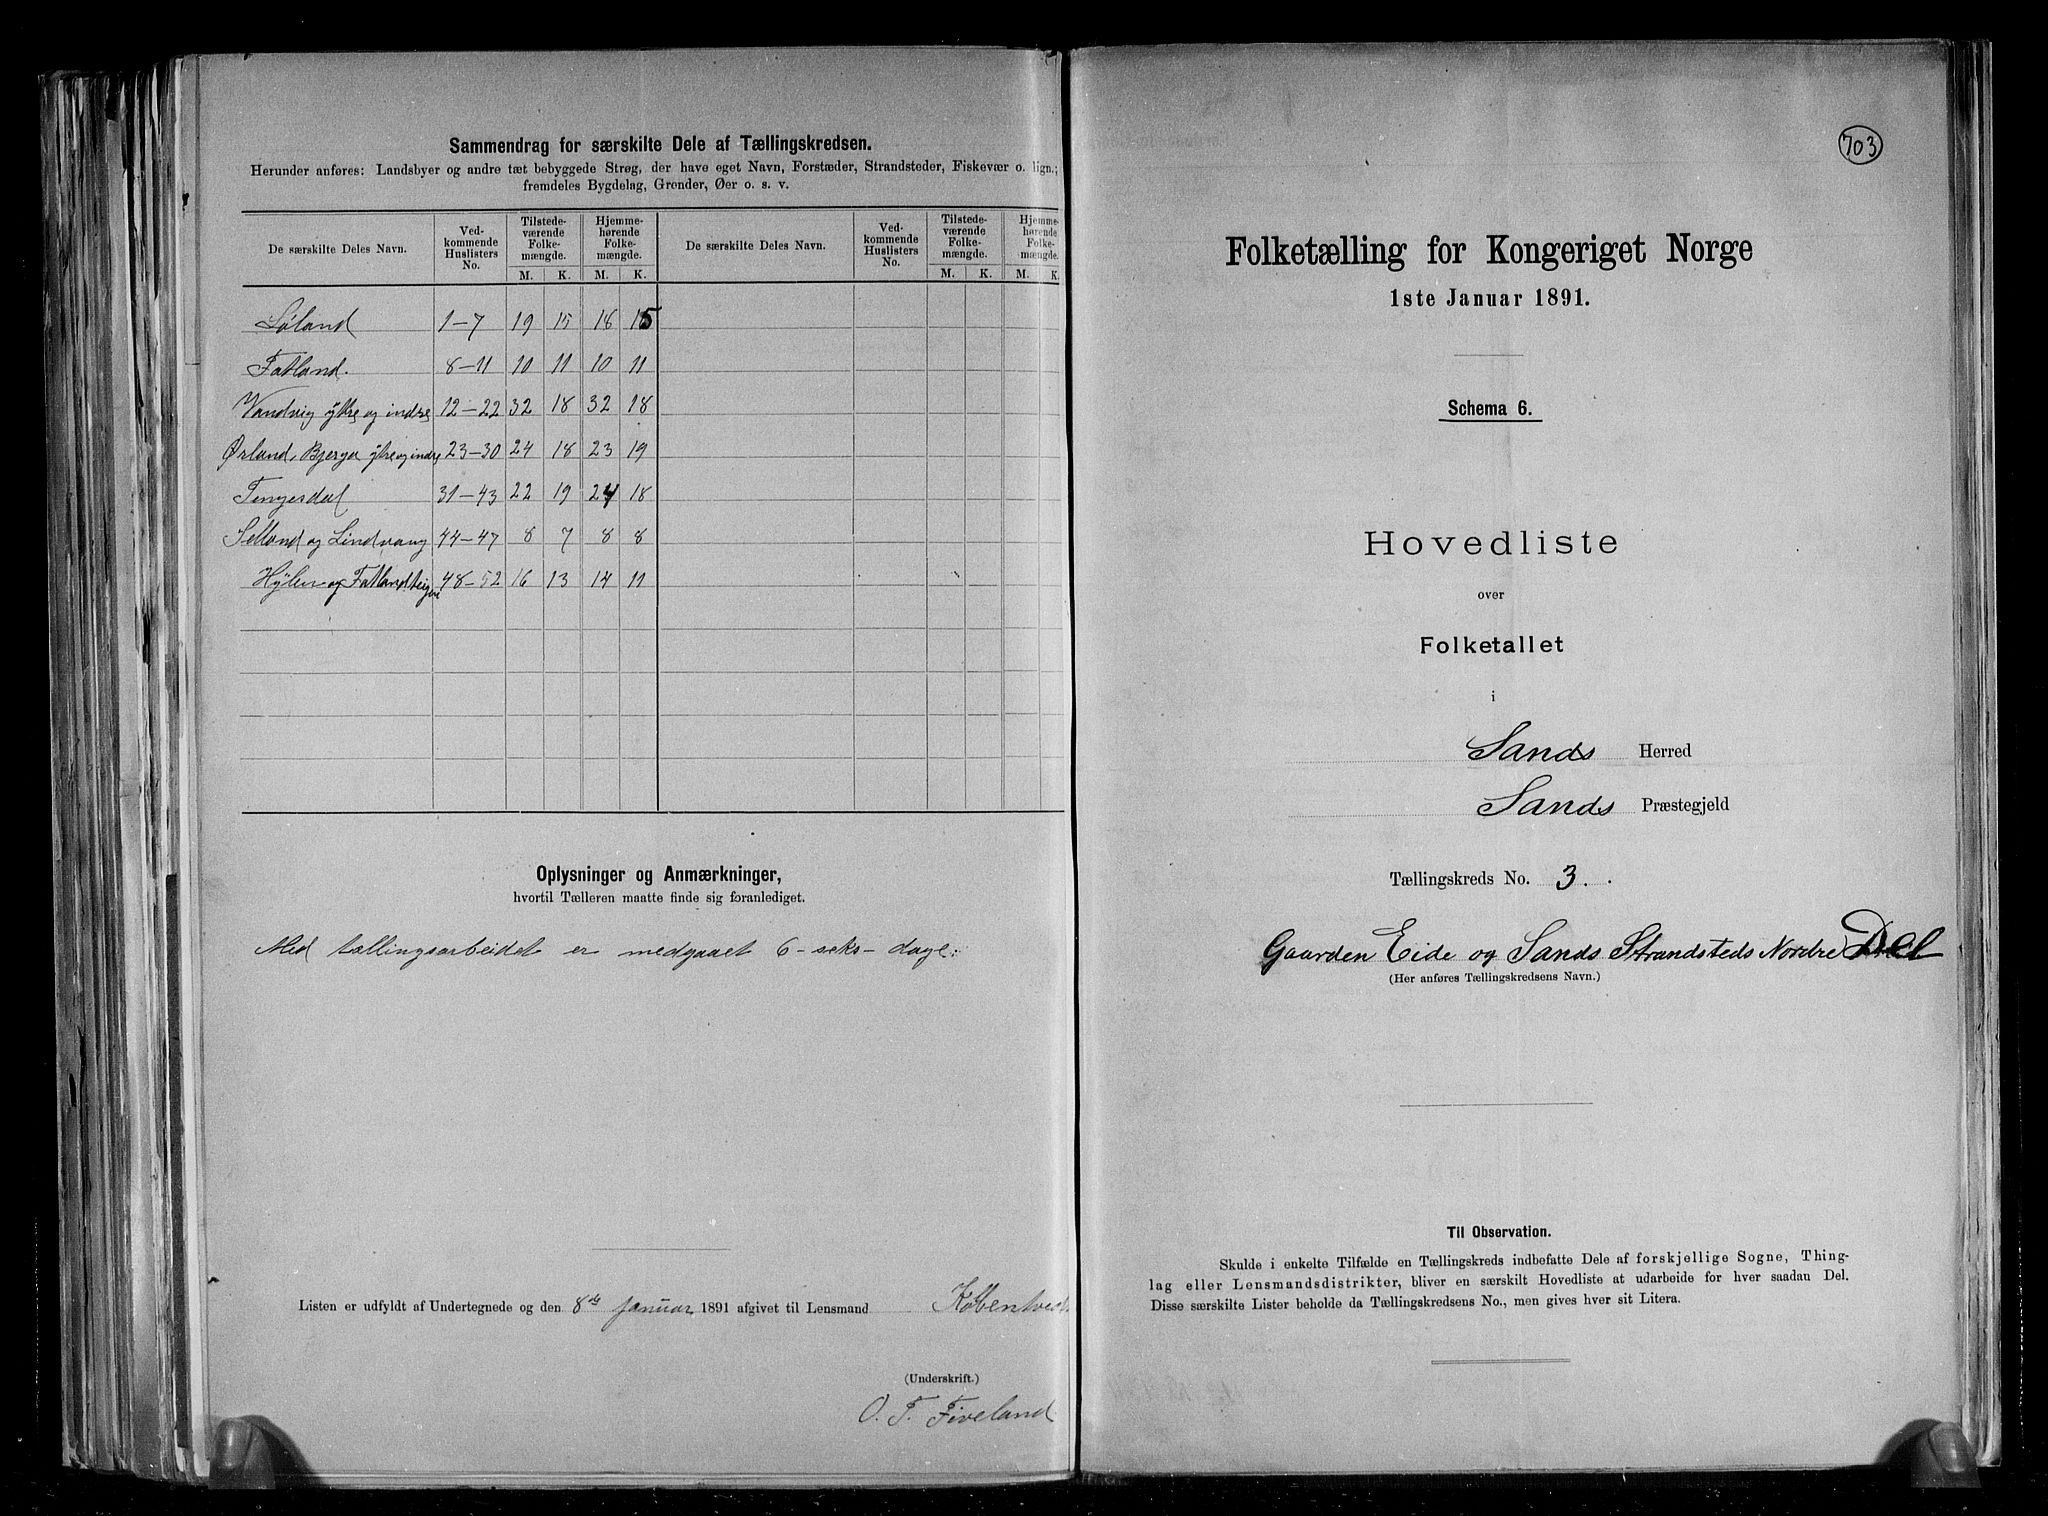 Sammendrag for særskilte Dele af Tællingskredsen.
Herunder anføres: Landsbyer og andre tæt bebyggede Strøg, der have eget Navn, Forstæder, Strandsteder, Fiskevær o. lign.;
fremdeles Bygdelag, Grender, Øer o. s. v.
De særskilte Deles Navn. Ved-kommende Huslisters No. Tilstede-værende Folke-mængde. Hjemme-hørende Folke-mængde. De særskilte Deles Navn. Ved-kommende Huslisters No. Tilstede-værende Folke-mængde. Hjemme-hørende Folke-mængde.
M. K. M. K. M. K. M. K.
Løland 1-7 19 15 18 15
Fatland. 8-11 10 11 10 11
Vandvig ytre og indre 12-22 32 18 32 18
Ørland, Bjerga ytre og indre 23-30 24 18 23 19
Tengesdal 31-43 22 19 24 18
Selland og Lindvang 44-47 8 7 8 8
Hylen og Fatlandteigene 48-52 16 13 14 11
Oplysninger og Anmærkninger,
hvortil Tælleren maatte finde sig foranlediget.
Med tællingsarbeidet er medgaaet 6 - seks - dage.
Listen er udfyldt af Undertegnede og den 8de Januar 1891 afgivet til Lensmand
(Underskrift.)
O. T. Fiveland
703
Folketælling for Kongeriget Norge
1ste Januar 1891.
Schema 6.
Hovedliste
over
Folketallet
i
Sands Herred
Sands Præstegjeld
Tællingskreds No. 3.
Gaarden Eide og Sands Strandsteds Nordre Del
(Her anføres Tællingskredsens Navn.)
Til Observation.
Skulde i enkelte Tilfælde en Tællingskreds indbefatte Dele af forskjellige Sogne, Thing-
lag eller Lensmandsdistrikter, bliver en særskilt Hovedliste at udarbeide for hver saadan Del.
Disse særskilte Lister beholde da Tællingskredsens No., men gives hver sit Litera.